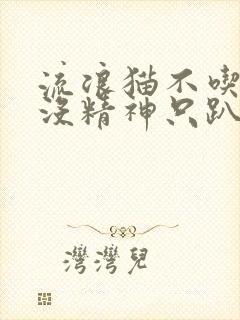 流浪猫不喫
没精神只趴
灣灣兒